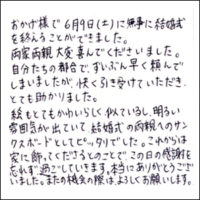 おかげ様で6月9日(土)に無事に結婚式
を終ることができました。
両家両親大変喜んでくださいました。
自分たちの都合で、ずいぶん早く頼んで
しまいましたが、快く引き受けていただき、
とても助かりました。
絵もとてもかわいらしく似ているし、明るい
雰囲気が出ていて結婚式の両親へのサン
クスボードとしてピッタリでした。これからは
家に飾ってくださるとのことで、この日の感謝を
忘れず過ごしていきます。本当にありがとうござ
いました。また の機会の際は、よろしくお願いします。